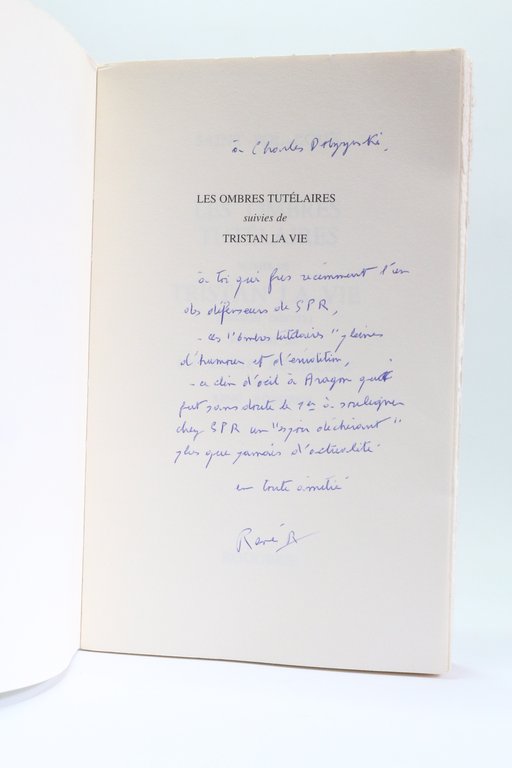 à Charles Dobzynski,
LES OMBRES TUTÉLAIRES
suivies de
TRISTAN LA VIE
à toi qui fus récemment l'un
des défenseurs de SPR,
- ces "Ombres tutélaires" pleines
d'humour et d'émotion,
- ce clin d'oeil à Aragon qui
fut sans doute le 1er à souligner
chez SPR un "espoir déchirant"
plus que jamais d'actualité.
en toute amitié
René